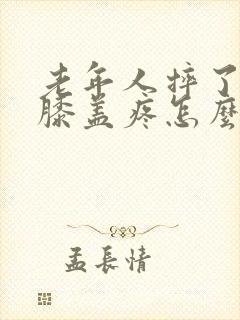 老年人摔了
膝盖疼怎麼
孟長情